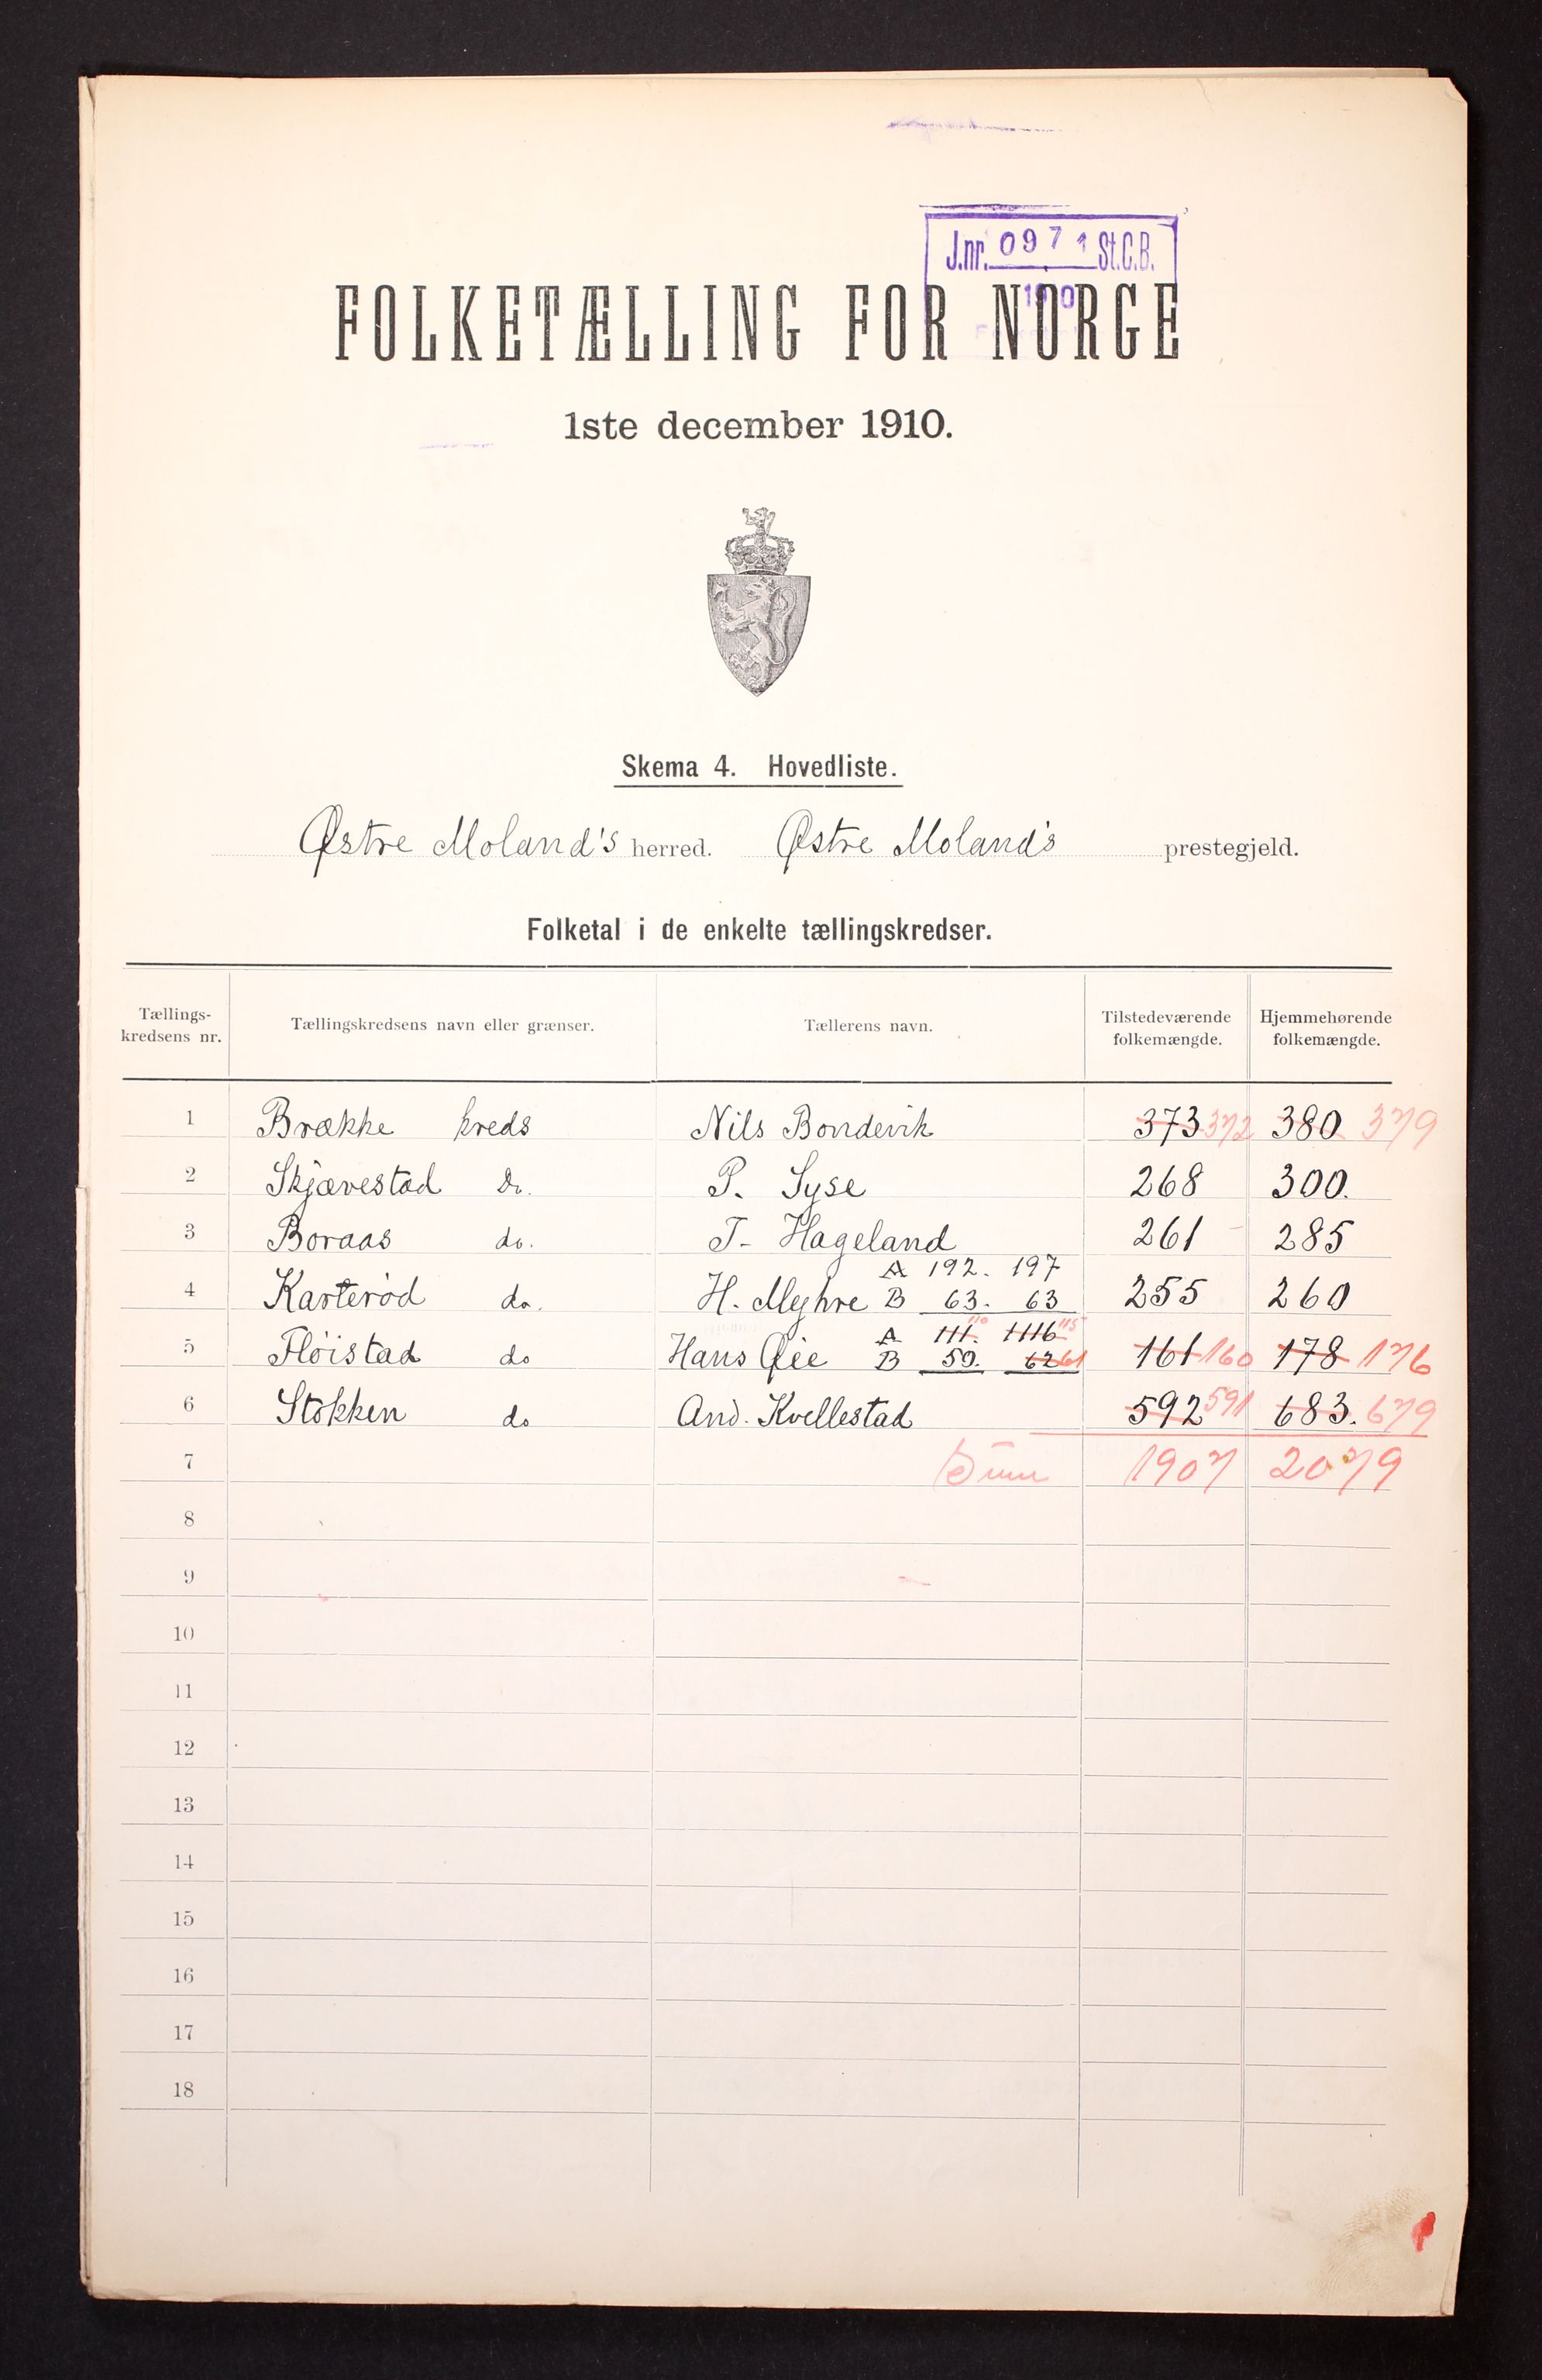 J.nr. 0971 St.C.B.
FOLKETÆLLING FOR NORGE
1ste december 1910.
Skema 4. Hovedliste.
Østre Moland's herred. Østre Moland's prestegjeld.
Folketal i de enkelte tællingskredser.
Tællings-kredsens nr. Tællingskredsens navn eller grænser. Tællerens navn. Tilstedeværende folkemængde. Hjemmehørende folkemængde.
1 Brække kreds Nils Bondevik 373 372 380 379
2 Skjævestad Do. P. Syse 268 300.
3 Boraas do. T. Hageland 261 285
A 192. 197
4 Karterød do. H. Myhre B 63. 63 255 260
A 111. 110 1116 115
5 Fløistad do Hans Øie B 50. 62 61 161 160 178 176
6 Stokken do And. Kvellestad 592 591 683. 679
7 Sum 1907 2079
8
9
10
11
12
13
14
15
16
17
18